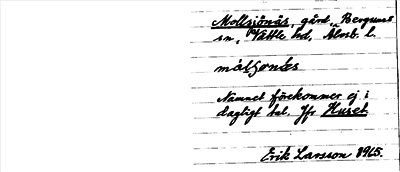 Mollsjönäs, gård, Bergums
sn, Vättle hd, Älvsb. l.
Namnet förekommer ej i
dagligt tal. Jfr Huset
Erik Larsson 1915.